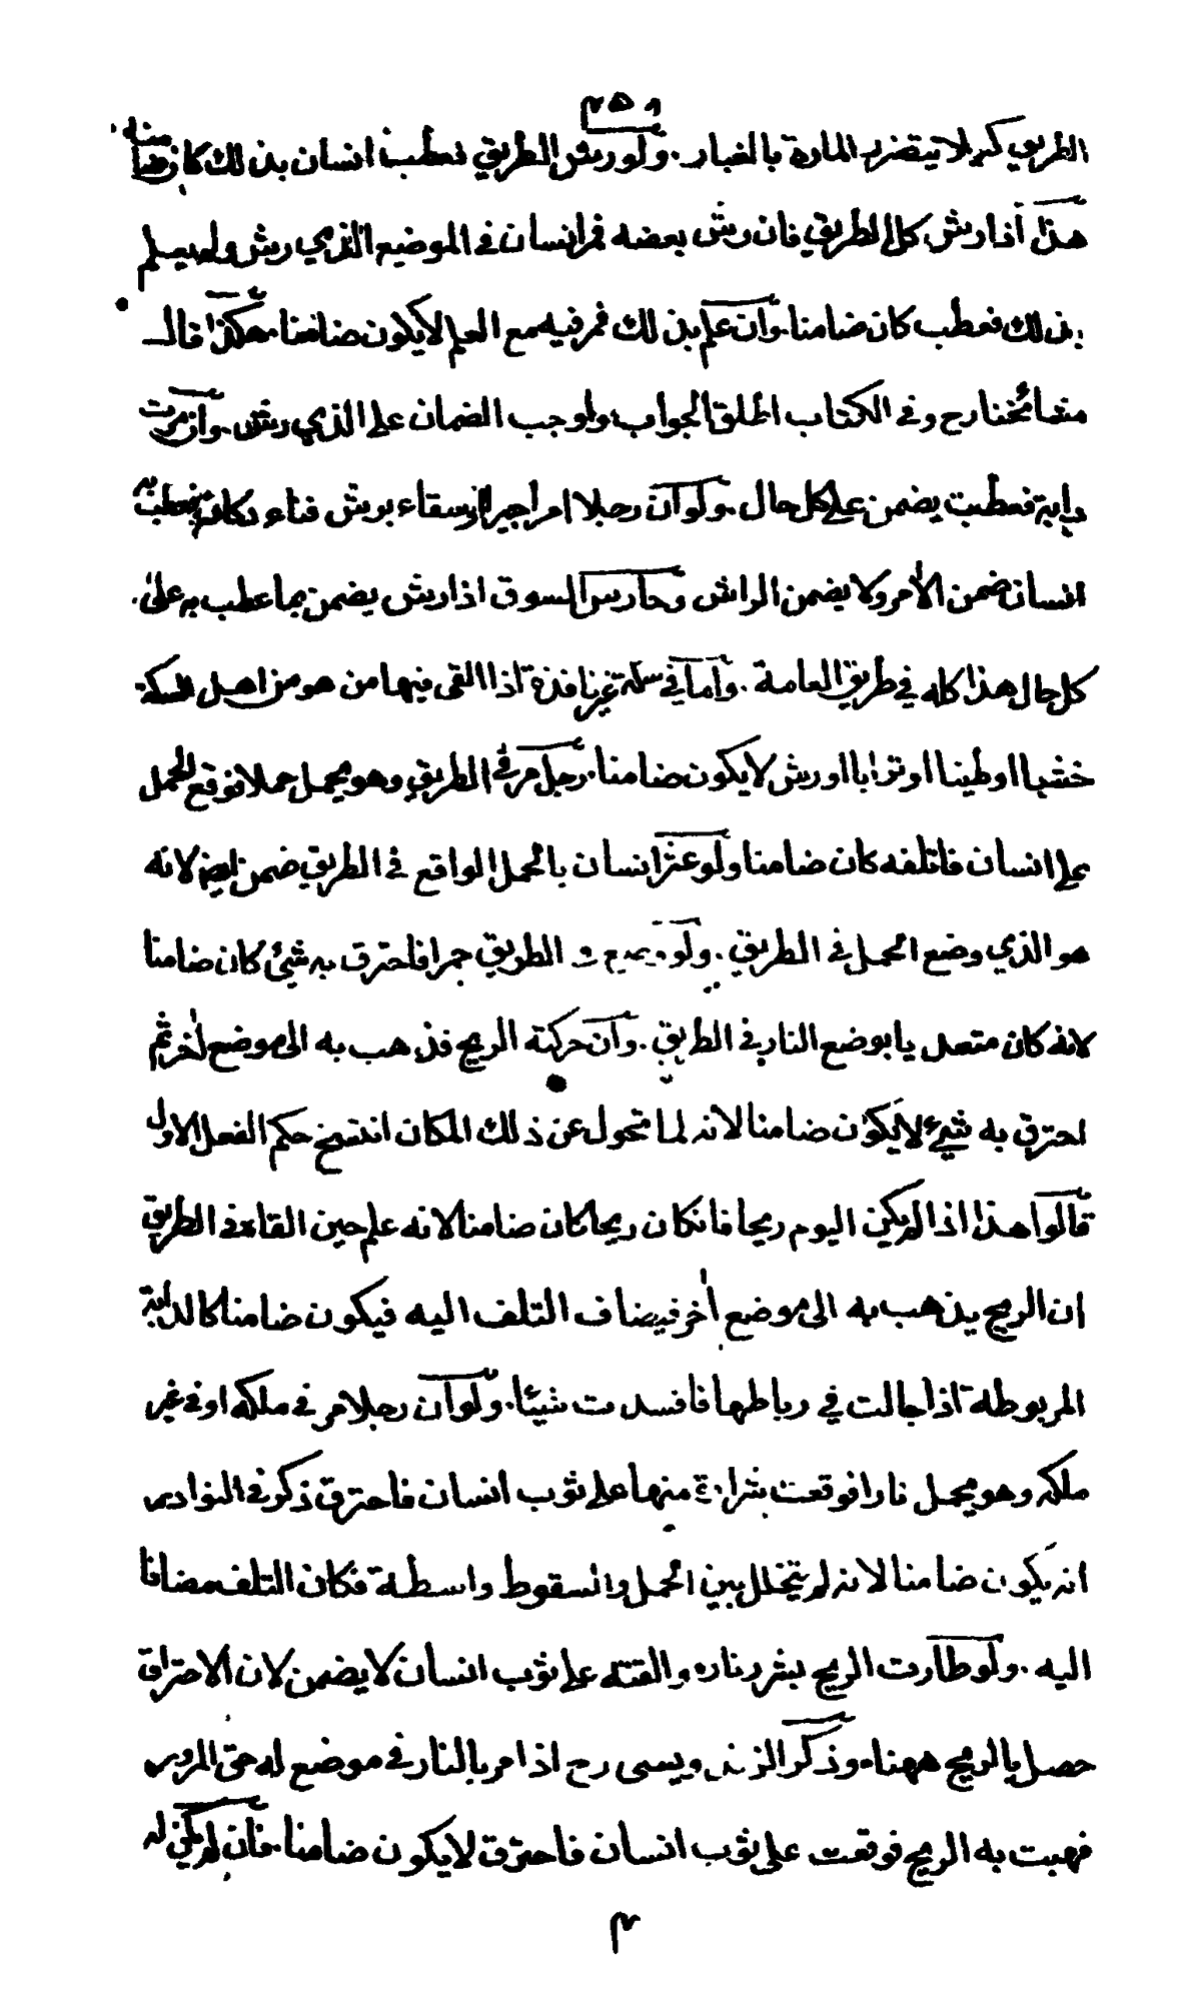 ٢٥١
الطريق كيلا يتضرر المارة بالغبار. ولو رش الطريق فعطب انسان بذلك كان ضامنا
هذا اذا رش كل الطريق فان رش بعضه فمر انسان فى الموضع الذي رش ولم يعلم
بذلك فعطب كان ضامنا. وان علم بذلك فمر فيه مع العلم لا يكون ضامنا. هكذا قال
مشائخنا رح وفى الكتاب اطلق الجواب واوجب الضمان على الذي رش. وان مرت
دابة فعطبت يضمن على كل حال. ولو ان رجلا امر اجيرا او سقاء برش فناء دكانه فعطب به
انسان ضمن الآمر ولا يضمن الراش وحارس السوق اذا رش يضمن بما عطب به على
كل حال هذا كله في طريق العامة. واما في سكة غير نافذة اذا القى فيها من هو من اهل السكة
خشبا او طينا او ترابا او رش لا يكون ضامنا. رجل مر فى الطريق وهو يحمل حملا فوقع الحمل
على انسان فاتلفه كان ضامنا ولو عثر انسان بالحمل الواقع فى الطريق ضمن ايضا لانه
هو الذي وضع الحمل فى الطريق. ولو وضع في الطريق جمرا فاحترق به شئ كان ضامنا
لانه كان متعديا بوضع النار فى الطريق. وان حركته الريح فذهب به الى موضع اٰخر ثم
احترق به شيء لا يكون ضامنا لانه لما تحول عن ذلك المكان انتسخ حكم الفعل الاول
قالوا هذا اذا لم يكن اليوم ريحا فان كان ريحا كان ضامنا لانه علم حين القاه فى الطريق
ان الريح يذهب به الى موضع اٰخر فيضاف التلف اليه فيكون ضامنا كالدابة
المربوطة اذا جالت في رباطها فافسدت شيئا. ولو ان رجلا مر فى ملكه او فى غير
ملكه وهو يحمل نارا فوقعت شرارة منها على ثوب انسان فاحترق ذكر فى النوادر
انه يكون ضامنا لانه لم يتخلل بين الحمل والسقوط واسطة فكان التلف مضافا
اليه. ولو طارت الريح بشرر ناره والقته على ثوب انسان لا يضمن لان الاحتراق
حصل بالريح ههنا. وذكر الزندويسى رح اذا مر بالنار فى موضع له حق المرور
فهبت به الريح فوقعت على ثوب انسان فاحترق لا يكون ضامنا. فان لم يكن له
م